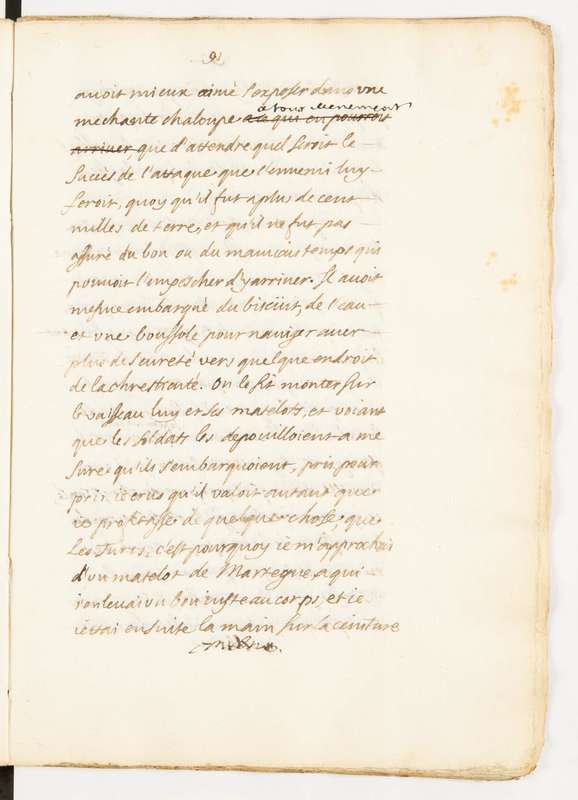 9
avoit mieux aimé s'exposer dans vne
a tout evenement
mechante chaloupe a ce qui en pourroit
arriver, que d'attendre quel seroit le
succès de l'attaque que l'ennemi luy
feroit, quoy qu'il fut a plus de cent
milles de terre, et qu'il ne fut pas
assuré du bon ou du mauvais temps qui
pouvoit l'empescher d'y arriver. Il avoit
mesme embarqué du biscüit, de l'eau
et vne boussole pour naviger avec
plus de seureté vers quelque endroit
de la chrestienté. On le fit monter sur
le vaisseau luy et ses matelots, et voiant
que les soldats les depouilloient a me
sure qu'ils s'embarquoient, pris pour
pris ie crus qu'il valoit autant que
ie profitasse de quelque chose, que
les Turcs, c'est pourquoy ie m'approchai
d'vn matelot de Martegue, a qui
i'enlevai vn bon iuste au corps, et ie
iettai ensuite la main sur la ceinture